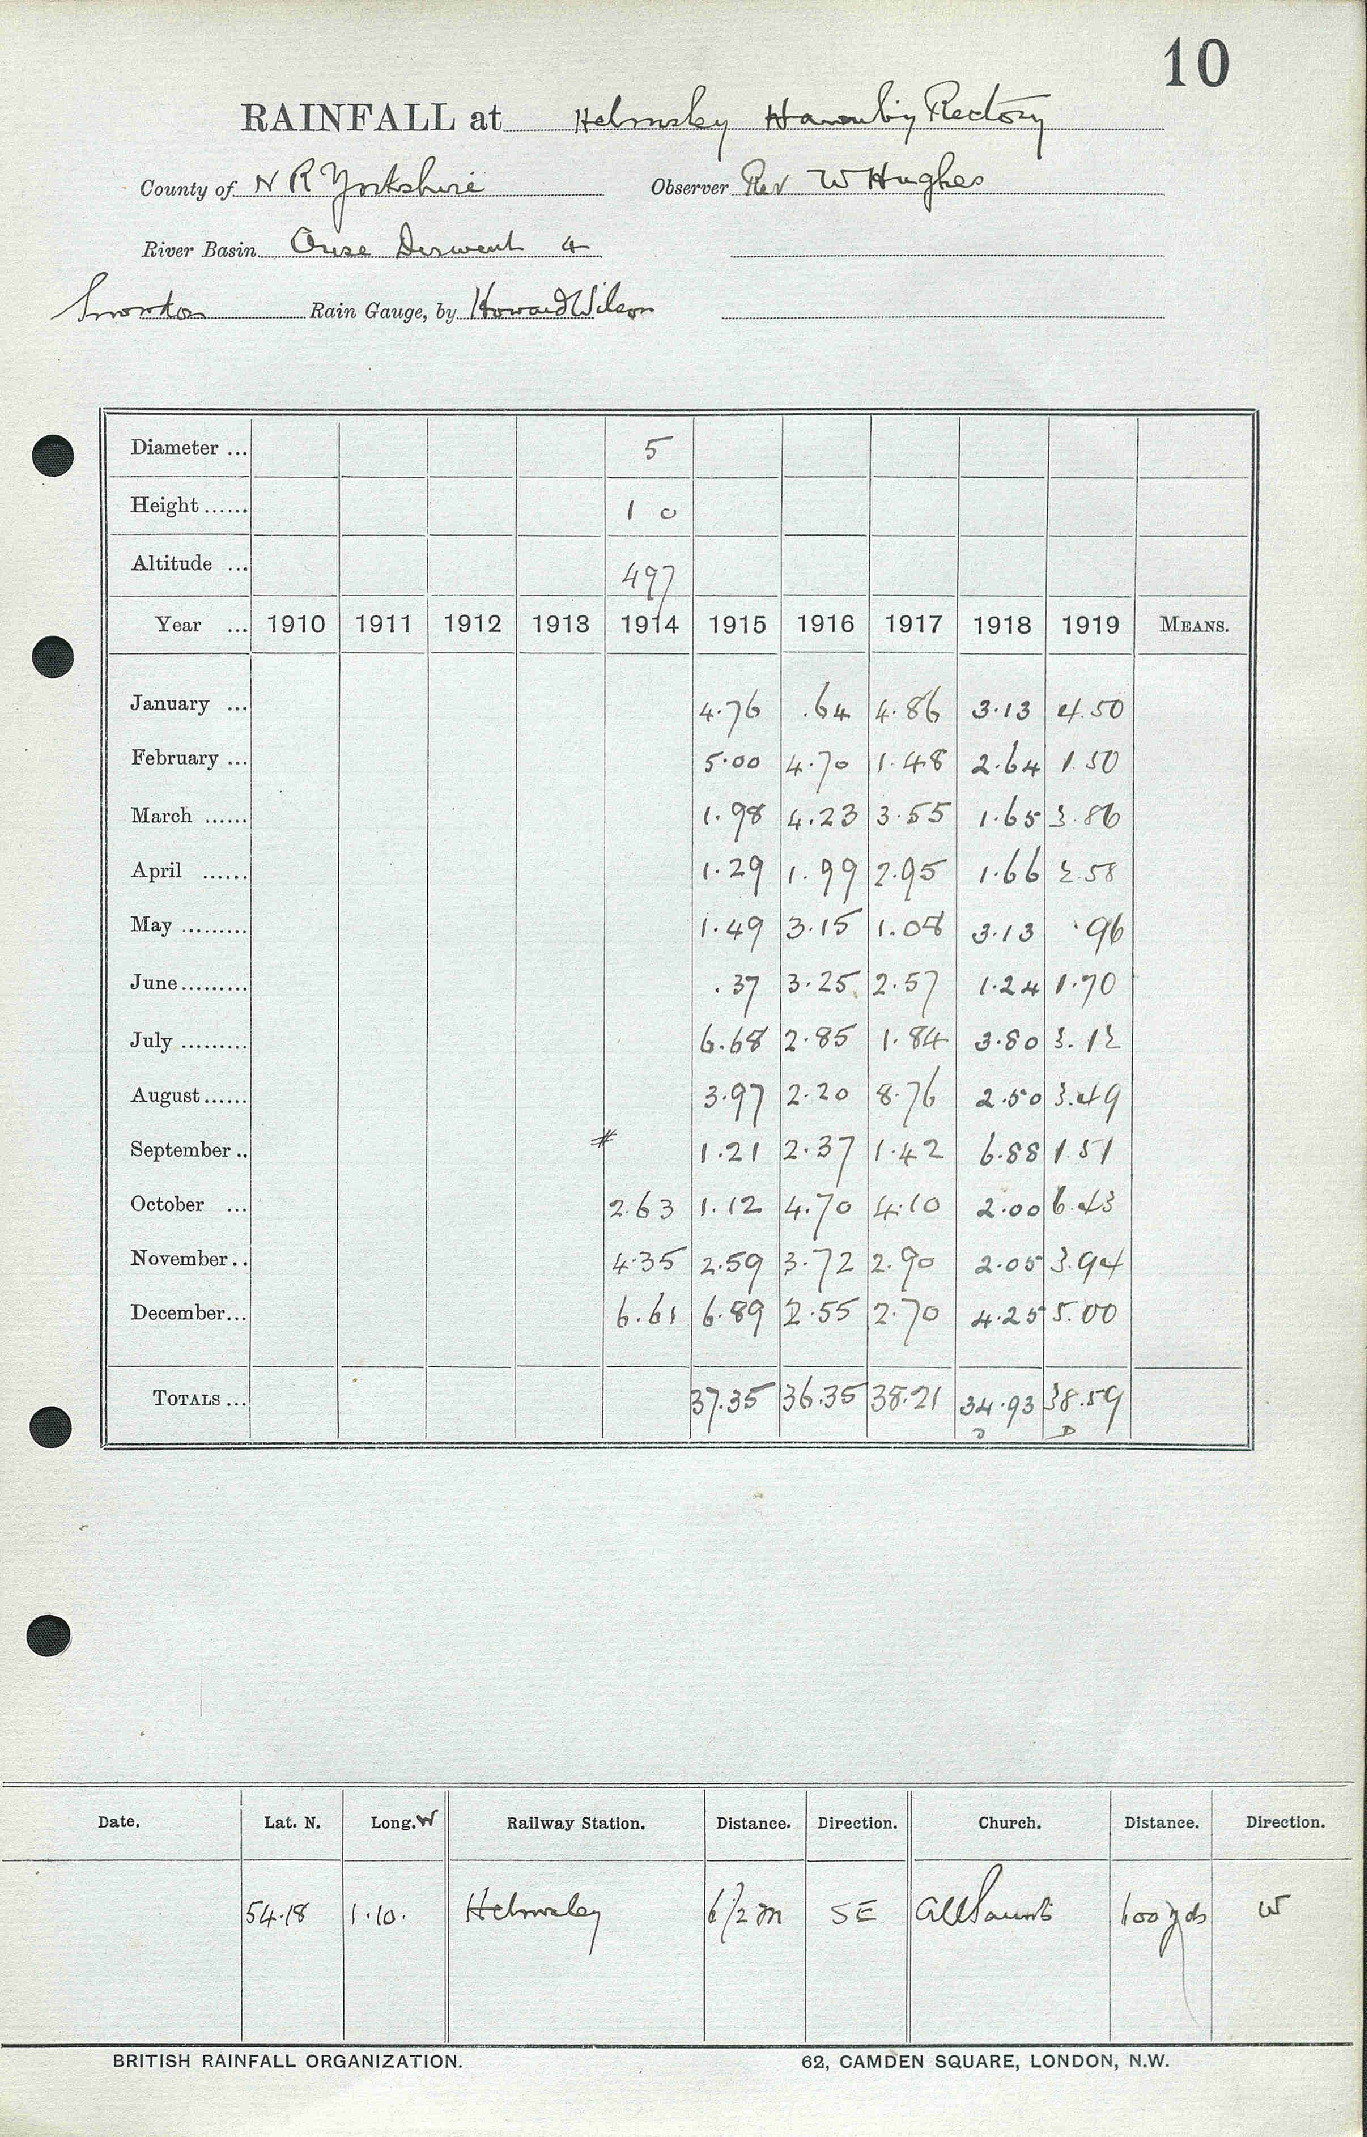 10
RAINFALL at Helmsley Hawnby Rectory
County of N R Yorkshire Observer Rev W Hughes
River Basin Ouse Derwent 4
Snowdon Rain Gauge, by Howard Wilson
Diameter ... 5
Height ...... 1 0
Altitude ... 497
Year ... 1910 1911 1912 1913 1914 1915 1916 1917 1918 1919 MEANS.
January ... 4.76 .64 4.86 3.13 4.50
February ... 5.00 4.70 1.48 2.64 1.50
March ...... 1.98 4.23 3.55 1.65 3.86
April ...... 1.29 1.99 2.95 1.66 2.58
May ......... 1.49 3.15 1.08 3.13 .96
June......... .37 3.25 2.57 1.24 1.70
July ......... 6.68 2.85 1.84 3.80 3.12
August...... 3.97 2.20 8.76 2.50 3.49
September .. # 1.21 2.37 1.42 6.88 1.51
October ... 2.63 1.12 4.70 4.10 2.00 6.43
November.. 4.35 2.59 3.72 2.90 2.05 3.94
December... 6.61 6.89 2.55 2.70 4.25 5.00
TOTALS ... 37.35 36.35 38.21 34.93 38.59
D D
Date. Lat. N. Long. W Railway Station. Distance. Direction. Church. Distance. Direction.
54.18 1.10. Helmsley 6 1/2 m SE All Saints 600 yds W
BRITISH RAINFALL ORGANIZATION. 62, CAMDEN SQUARE, LONDON, N.W.